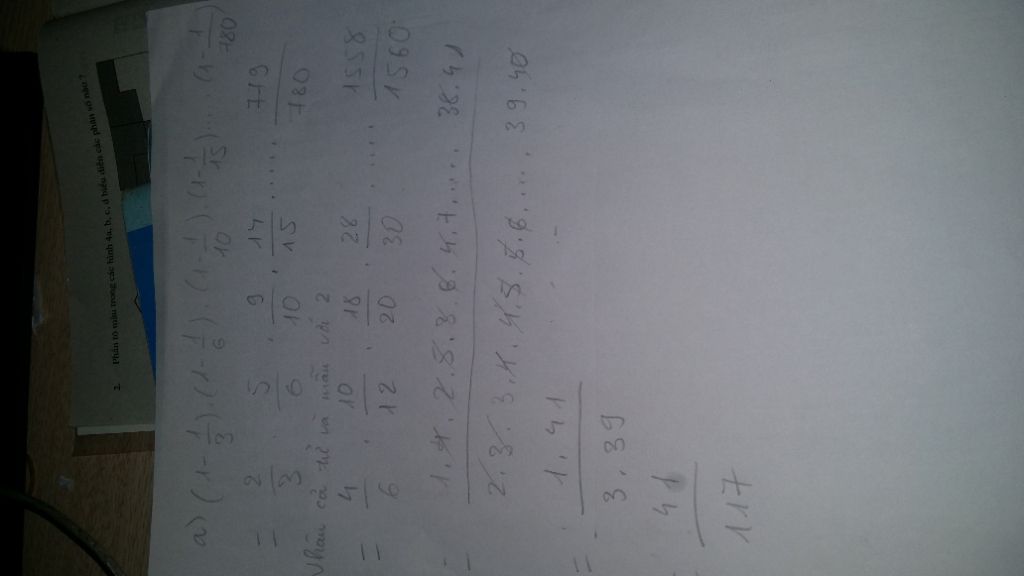 2. Phân số nào trong các hình 4a, b, c, d biểu diễn các phân số nào?
a) (1 - 1/3) . (1 - 1/6) . (1 - 1/10) . (1 - 1/15) ... (1 - 1/780)
= 2/3 . 5/6 . 9/10 . 14/15 ...... 779/780
Nhân cả tử và mẫu với 2
= 4/6 . 10/12 . 18/20 . 28/30 ..... 1558/1560.
= 1.4.2.5.3.6.4.7..... 38.41 / 2.3.3.4.4.5.5.6..... 39.40
= 1.41 / 3.39
41/117